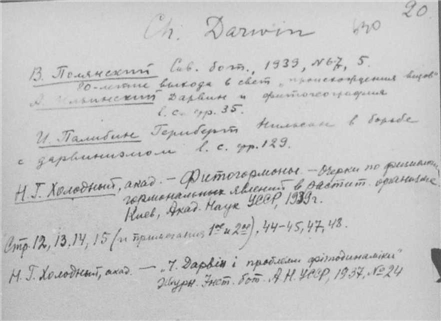 20.
Ch. Darwin
В. Полянский Сов. бот., 1939, №6-7, 5.
80-летие выхода в свет „происхождения видов"
А. Ильинский Дарвин и фитогеография
l. c. стр. 35.
И. Палибин Гериберт Нильсон в борьбе
с дарвинизмом l. c. стр. 129.
Н.Г. Холодный, акад. – Фитогормоны – Очерки по физиолог.
гормональных явлений в растит. организме
Киев, Акад. Наук УССР, 1939 г.
Стр. 12, 13, 14, 15 (и примечания 1ое и 2ое), 44-45, 47, 48.
Н.Г. Холодный, акад. – „Ч. Дарвін і проблеми фітодинаміки"
Журн. Инст. бот. А.Н. УССР, 1937, № 24